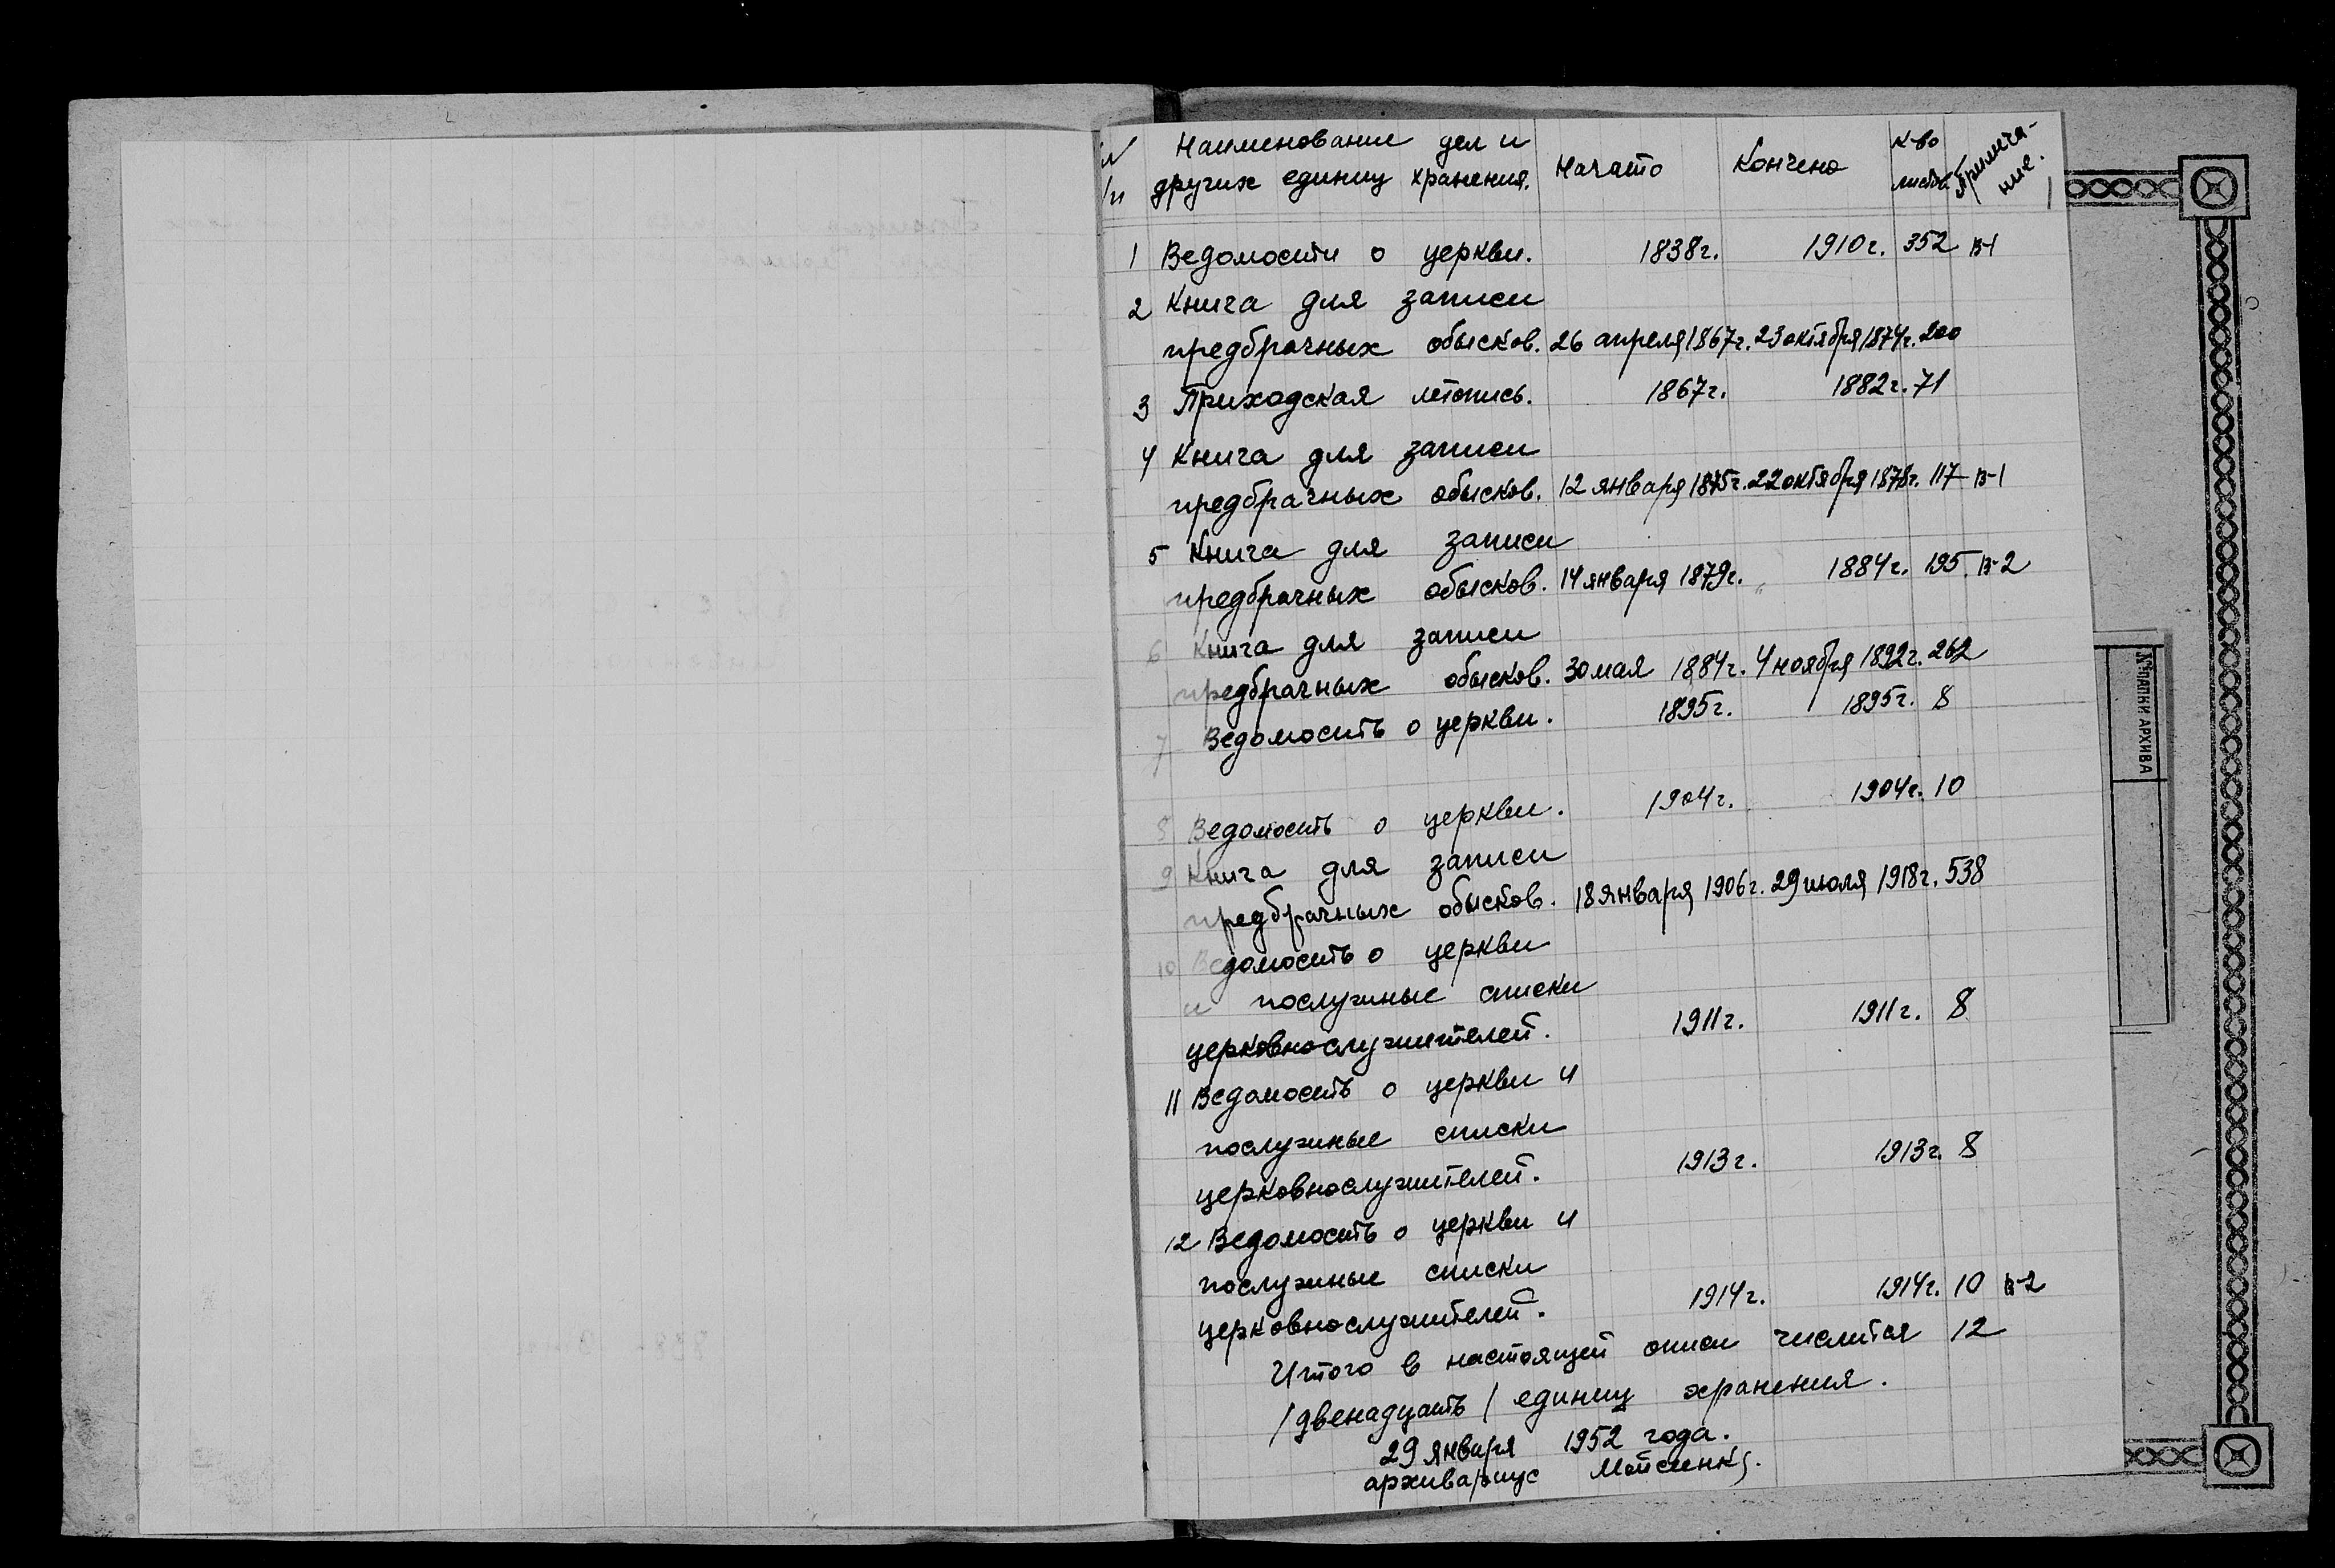 N Наименование дел и Начато Кончено К-во Примеча-
/п других единиц хранения. листов ние.
1 Ведомости о церкви. 1838г. 1910г. 352 В-1
2 Книга для записи
предбрачных обысков. 26 апреля 1867г. 23 октября 1874г. 200
3 Приходская летопись. 1867г. 1882г. 71
4 Книга для записи
предбрачных обысков. 12 января 1875г. 22 октября 1878г. 117 В-1
5 Книга для записи
предбрачных обысков. 14 января 1879г. 1884г. 195 В-2
6 Книга для записи
предбрачных обысков. 30 мая 1884г. 4 ноября 1892г. 262
7 Ведомость о церкви. 1895г. 1895г. 8
8 Ведомость о церкви. 1904г. 1904г. 10
9 Книга для записи
предбрачных обысков. 18 января 1906г. 29 июля 1918г. 538
10 Ведомость о церкви
и послужные списки
церковнослужителей. 1911г. 1911г. 8
11 Ведомость о церкви и
послужные списки
церковнослужителей. 1913г. 1913г. 8
12 Ведомость о церкви и
послужные списки
церковнослужителей. 1914г. 1914г. 10 В-2
Итого в настоящей описи числится 12
/двенадцать/ единиц хранения.
29 января 1952 года.
архивариус
№ ПАПКИ АРХИВА